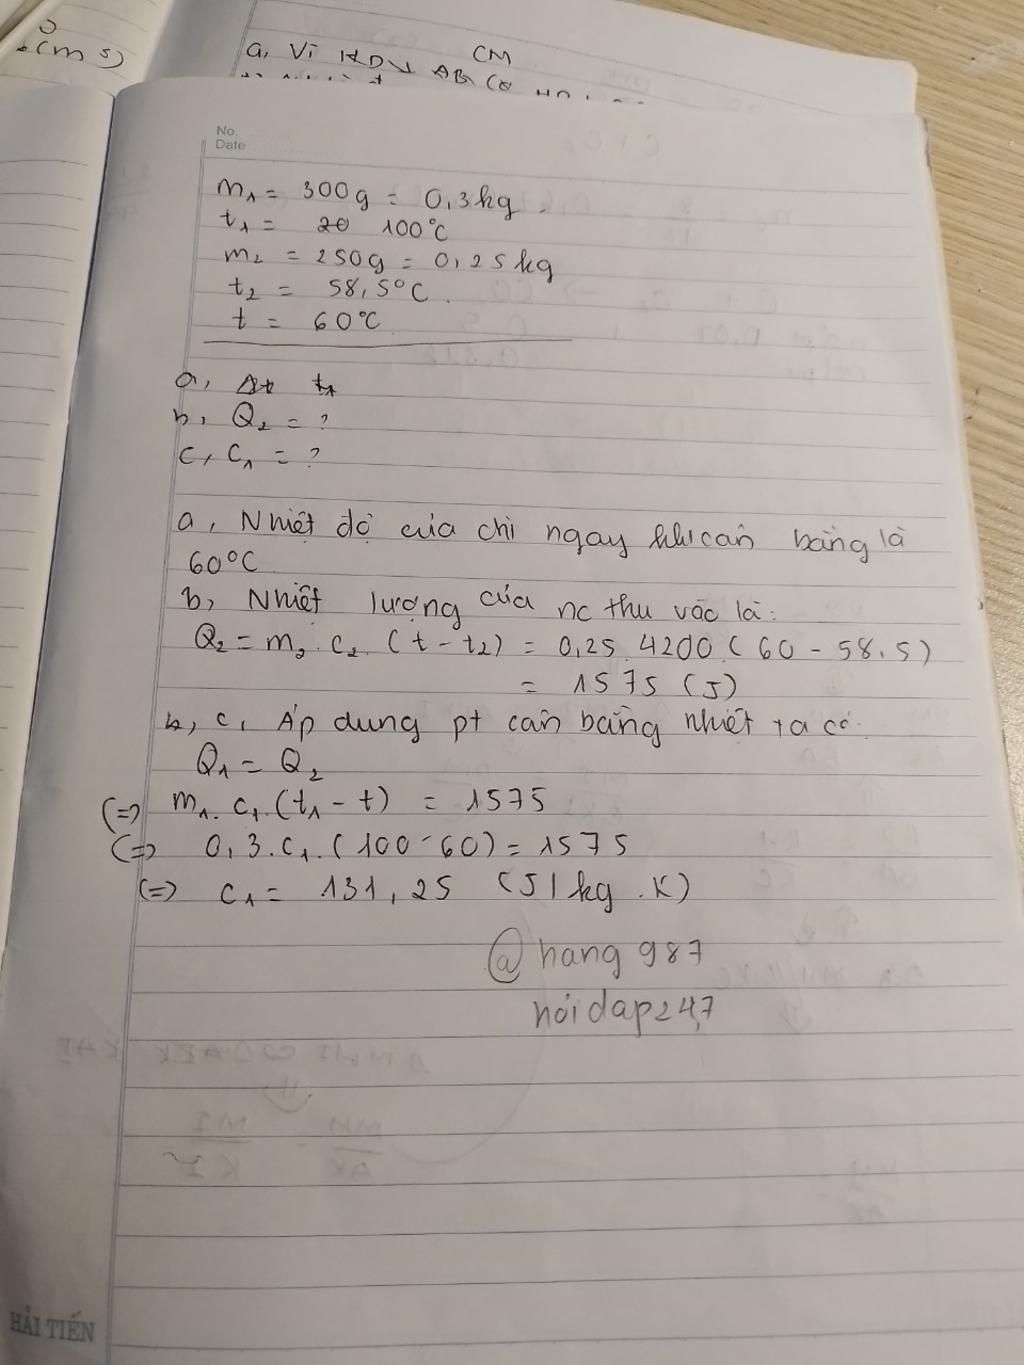 (m s)
a, Vì HDV AB CM
No.
Date
m₁ = 300g = 0,3kg.
t₁ = 100°C
m₂ = 250g = 0,25kg
t₂ = 58,5°C.
t = 60°C
a, t₁
b, Q₂ = ?
c, C₁ = ?
a, Nhiệt độ của chì ngay khi cân bằng là
60°C
b, Nhiệt lượng của nc thu vào là:
Q₂ = m₂.c₂.(t - t₂) = 0,25.4200(60 - 58,5)
= 1575 (J)
c, Áp dụng pt cân bằng nhiệt ta có
Q₁ = Q₂
(=) m₁.c₁.(t₁ - t) = 1575
(=) 0,3.c₁.(100 - 60) = 1575
(=) c₁ = 131,25 (J/kg.K)
@hang987
hoidap247
HẢI TIẾN